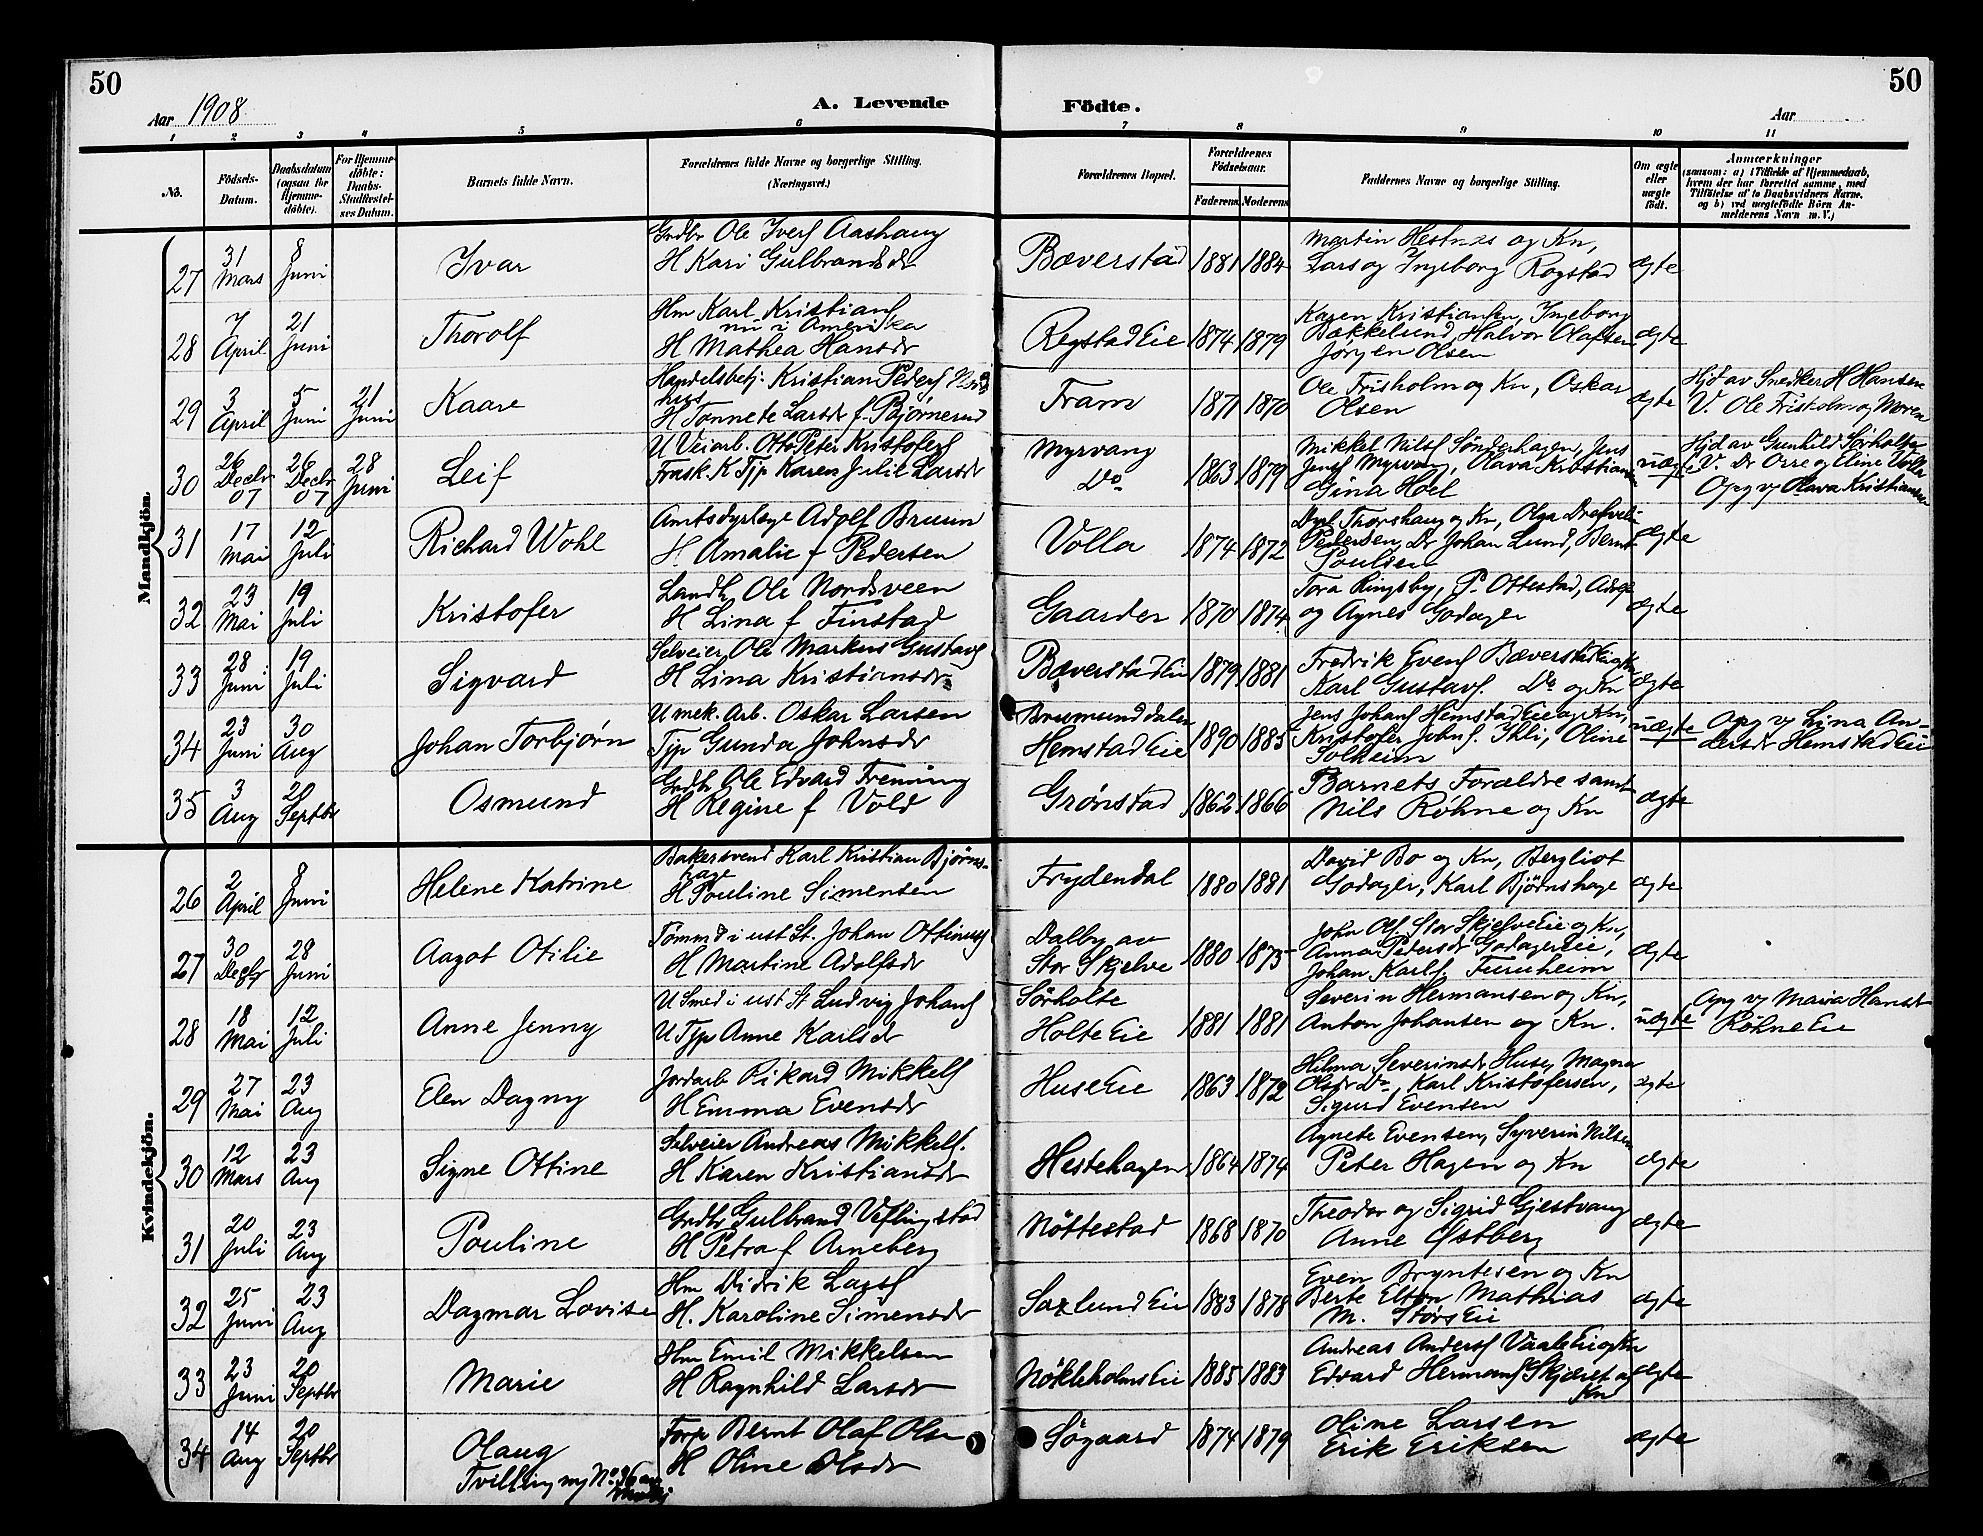 50
50
Aar 1908.
A. Levende
Födte.
Aar
1 2 3 4 5 6 7 8 9 10 11
No.
Födsels-Datum.
Daabsdatum (ogsaa for Hjemmedöbte).
For Hjemmedöbte: Daabs-Stadfæstelses Datum.
Barnets fulde Navn.
Forældrenes fulde Navne og borgerlige Stilling. (Næringsvei.)
Forældrenes Bopæl.
Forældrenes Födselsaar.
Faderens. Moderens.
Faddernes Navne og borgerlige Stilling.
Om ægte eller uægte födt.
Anmærkninger
(saasom: a) i Tilfælde af Hjemmedaab, hvem der har forrettet samme, med Tilföielse af to Daabsvidners Navne. og b) ved uægtefödte Börn Anmelderens Navn m. V.)
Mandkjön.
27 31 Mars 8 Juni Ivar Grdbr Ole Ivers Aashaug
H Kari Gulbrandsdr Bæverstad 1881 1884 Martin Hestnes og Kn,
Lars og Ingeborg Rogstad ægte
28 7 April 21 Juni Thorolf Hm Karl Kristians
nu i Amerika
H Mathea Hansdr Rogstad Eie 1874 1879 Karen Kristiansen, Ingeborg
Bækkelund, Halvor Olafsen
Jørgen Olsen ægte
29 3 April 5 Juni 21 Juni Kaare Handelsbetj. Kristian Peders
H Tonnete Larsdr f. Bjørnerud Fram 1871 1870 Ole Frisholm og Kn, Oskar
Olsen ægte Hjd av Snedker H Hansen
V. Ole Frisholm og Moren
30 26 Decbr 07 26 Decbr 07 28 Juni Leif U Veiarb. Otto Peter Kristofers
Frask. K Tjp Karen Julie Larsdr Myrvang
Do 1863 1879 Mikkel Nils Sønderhagen, Jens
Jens Myrvang, Olava Kristians
Gina Hoel uægte Hjd av Gunhild Sørholte
V. Dr Orre og Eline Volla
Opg v Olava Kristiansen
31 17 Mai 12 Juli Richard Wohl Amtsdyrlæge Adolf Bruun
H. Amalie f Pedersen Volla 1874 1872 Dyrl Thorshaug og Kn, Olga
Pedersen, Dr Johan Lund, Bernt
Poulsen ægte
32 23 Mai 19 Juli Kristofer Landh. Ole Nordsveen
H Lina f Finstad Gaarder 1870 1874 Tora Ringsby, P. Ottestad,
og Agnes Godager ægte
33 28 Juni 19 Juli Sigvard Selveier Ole Markus Gustavs
H Lina Kristiansdr Bæverstad Eie 1879 1881 Fredrik Evens Bæverstad
Karl Gustavs. Do og Kn ægte
34 23 Juni 30 Aug Johan Torbjørn U mek. Arb. Oskar Larsen
Tjp Gunda Johnsdr Brumunddalen
Hemstad Eie 1890 1885 Jens Johans Hemstad Eie og Kn,
Kristofer Johns. Ihli, Oline
Solheim uægte Opg v Lina An-
dersdr Hemstad Eie
35 3 Aug 20 Septbr Osmund Grdbr Ole Edvard Frening
H Regine f Vold Grønstad 1862 1866 Barnets Forældre samt
Nils Røhne og Kn ægte
Kvindekjön.
26 2 April 8 Juni Helene Katrine Bakersvend Karl Kristian Bjørns-
hage
H Pouline Simensen Frydendal 1880 1881 David Bo og Kn, Bergliot
Godager, Karl Bjørnshage ægte
27 30 Decbr 28 Juni Aagot Otilie Tømmd i ust St. Johan Ottinus
H Martine Adolfsdr Dalby av
Stor Skjelve 1880 1875 John Ols. Stor Skjelve Eie og Kn,
Anna Petersdr Godager Eie,
Johan Karls. Furuheim ægte
28 18 Mai 12 Juli Anne Jenny U Smed i ust St Ludvig Johans
U Tjp Anne Karlsdr Sørholte
Holte Eie 1881 1881 Severin Hermansen og Kn,
Anton Johansen og Kn. uægte Opg v Maria Hansdr
Røhne Eie
29 27 Mai 23 Aug Elen Dagny Jordarb Rikard Mikkels
H Emma Evensdr Huse Eie 1863 1872 Hilma Severinsdr Huse, Magna
Olsdr Do, Karl Kristofersen,
Sigurd Evensen ægte
30 12 Mars 23 Aug Signe Ottine Selveier Andreas Mikkels.
H Karen Kristiansdr Hestehagen 1864 1874 Agnete Evensen, Syverin Nilsen
Peter Hagen og Kn ægte
31 20 Juli 23 Aug Pouline Grdbr Gulbrand Veflingstad
H Petra f Arneberg Nöttestad 1868 1870 Theodor og Sigrid Gjestvang
Anne Østberg ægte
32 25 Juni 23 Aug Dagmar Lovise Hm Didrik Lars
H. Karoline Simensdr Saxlund Eie 1883 1878 Even Bryntesen og Kn
Berte Mathias
M. Størs Eie ægte
33 23 Juni 20 Septbr Marie Hm Emil Mikkelsen
H Ragnhild Larsdr Nökleholms Eie 1885 1883 Andreas Anders Vaale Eie og Kn
Edvard Hermans Skjæret og
Kn ægte
34 14 Aug 20 Septbr Olaug
Tvilling No 36 Forp Bernt Olaf Olsen
H Oline Olsdr Søgaard 1874 1879 Oline Larsen
Erik Eriksen ægte